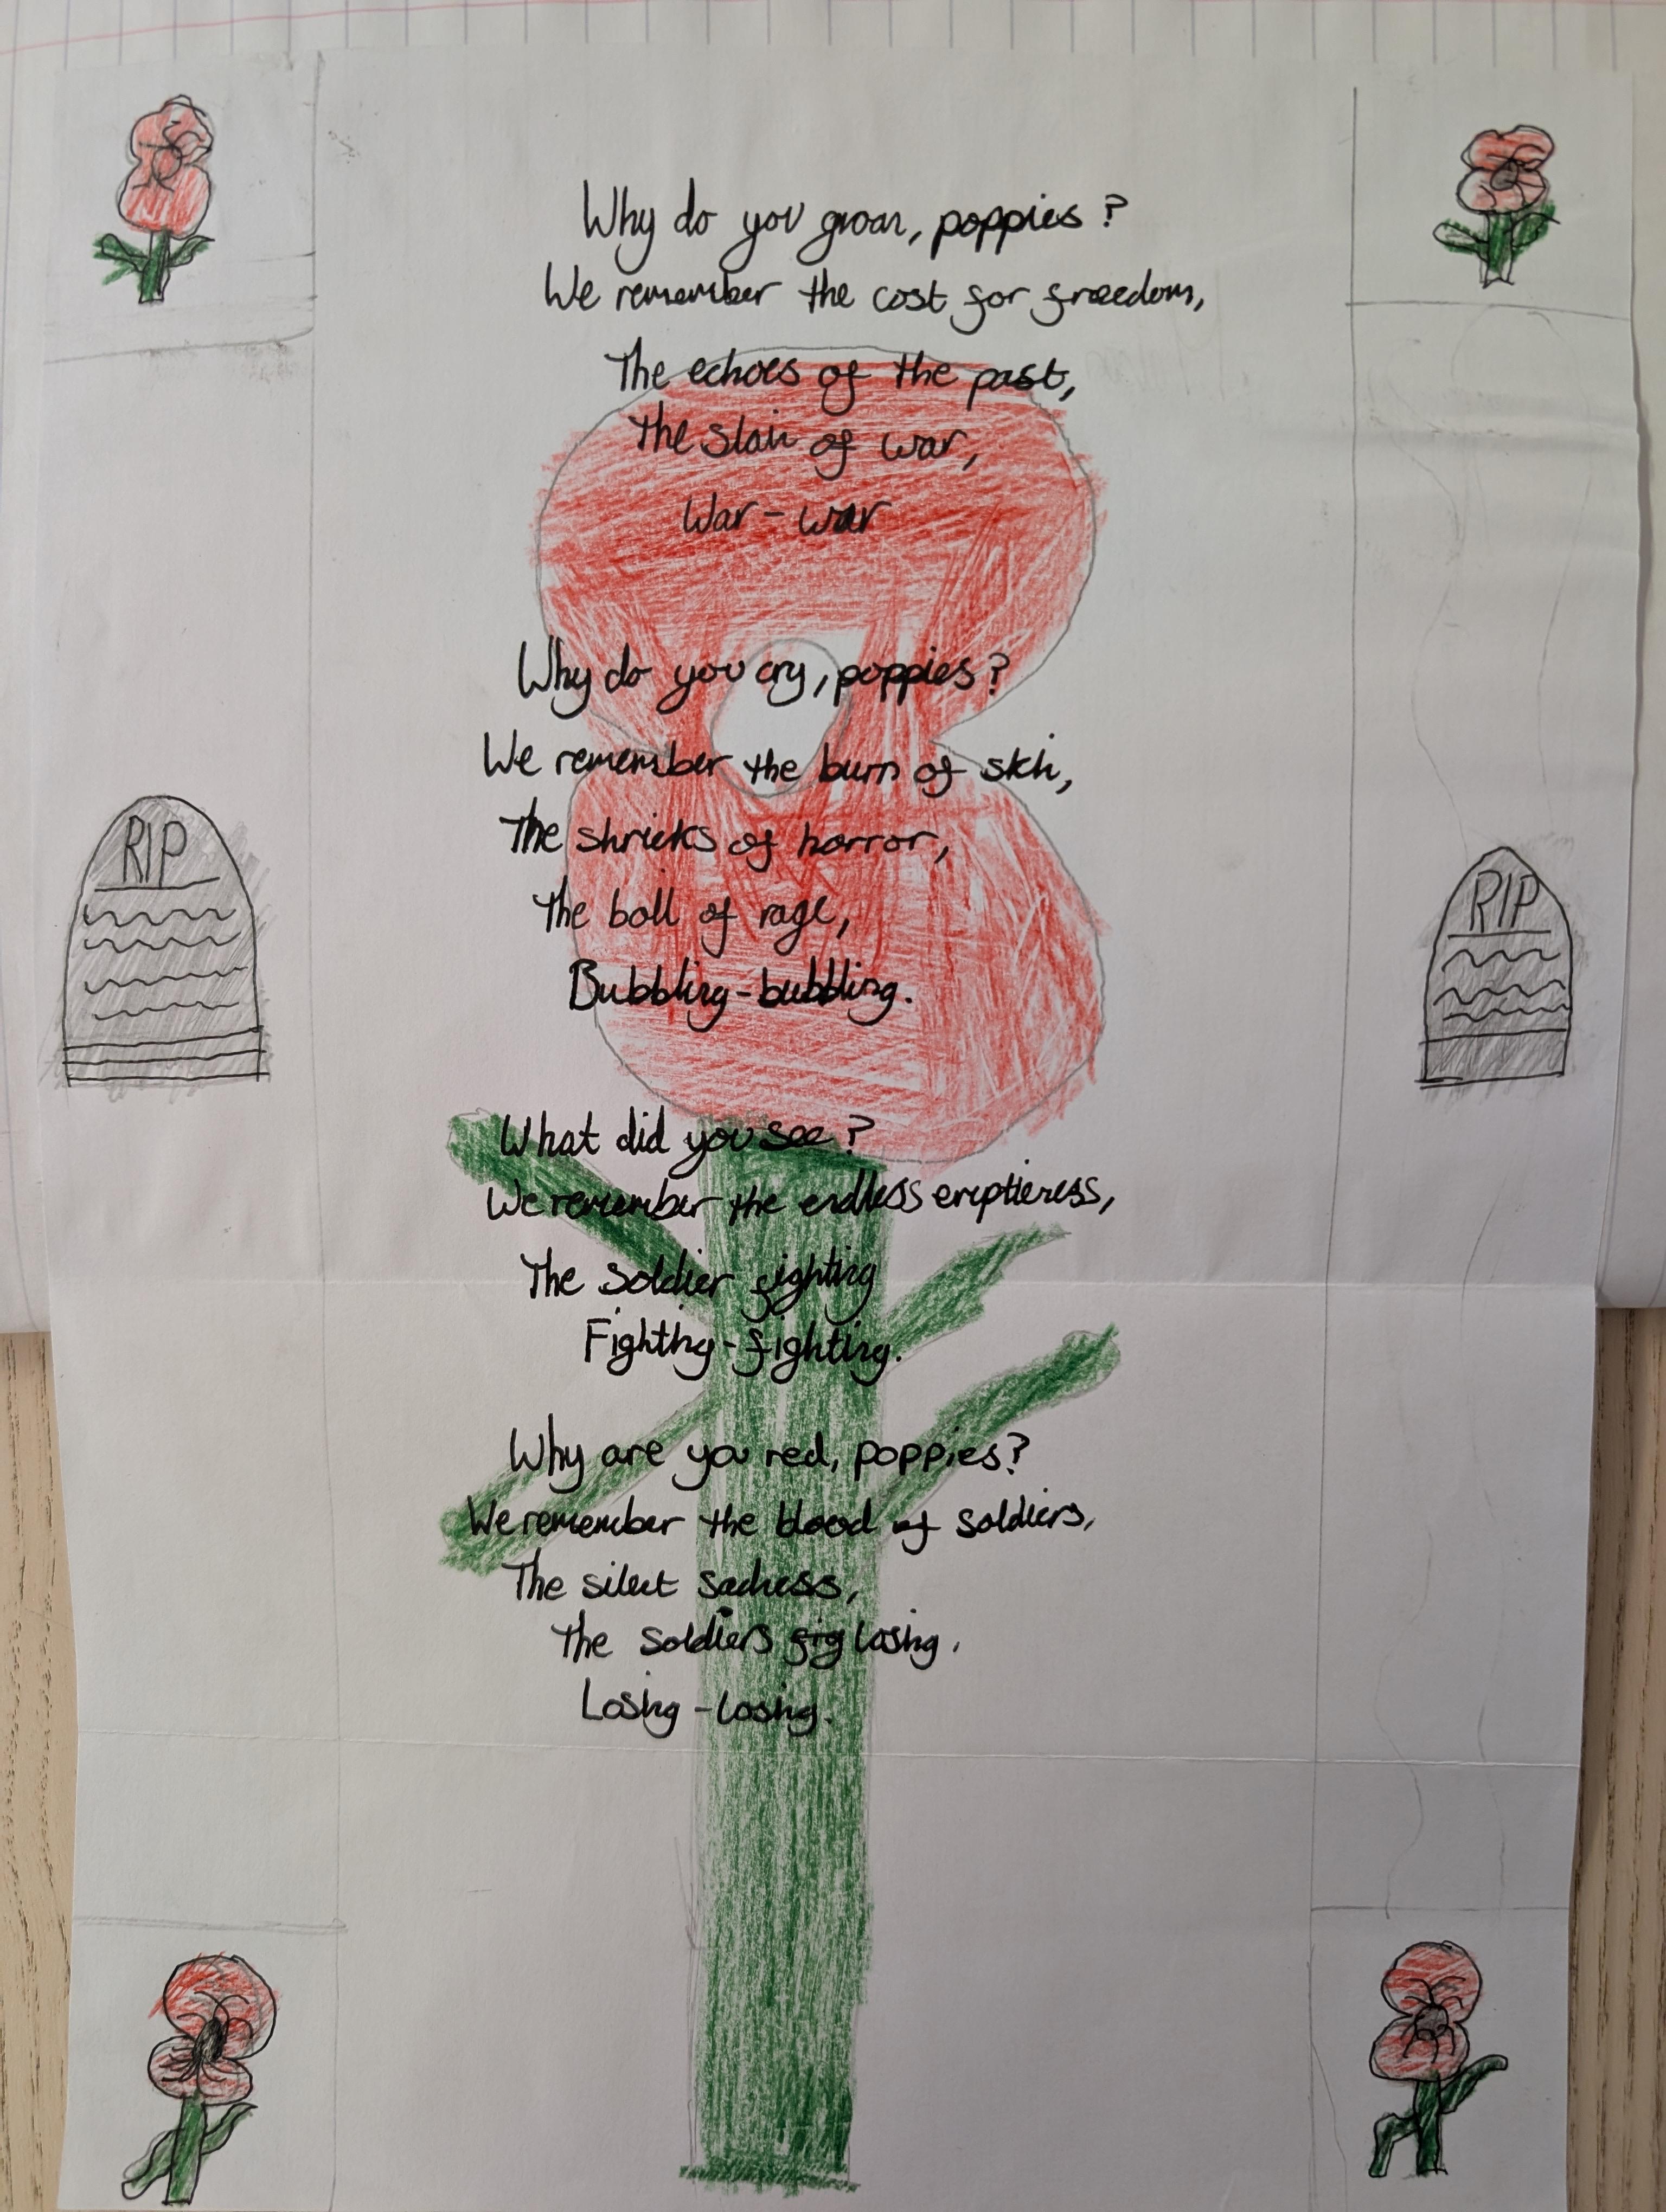 Why do you groan, poppies?
We remember the cost for freedom,
The echoes of the past,
The slain of war,
War - war
Why do you cry, poppies?
We remember the burn of skin,
The shrieks of horror,
The boil of rage,
Bubbling - bubbling.
What did you see?
We remember the endless emptieness,
The soldier fighting
Fighting - fighting.
Why are you red, poppies?
We remember the blood of soldiers,
The silent sadness,
The soldiers fig losing.
Losing - losing.
RIP
RIP